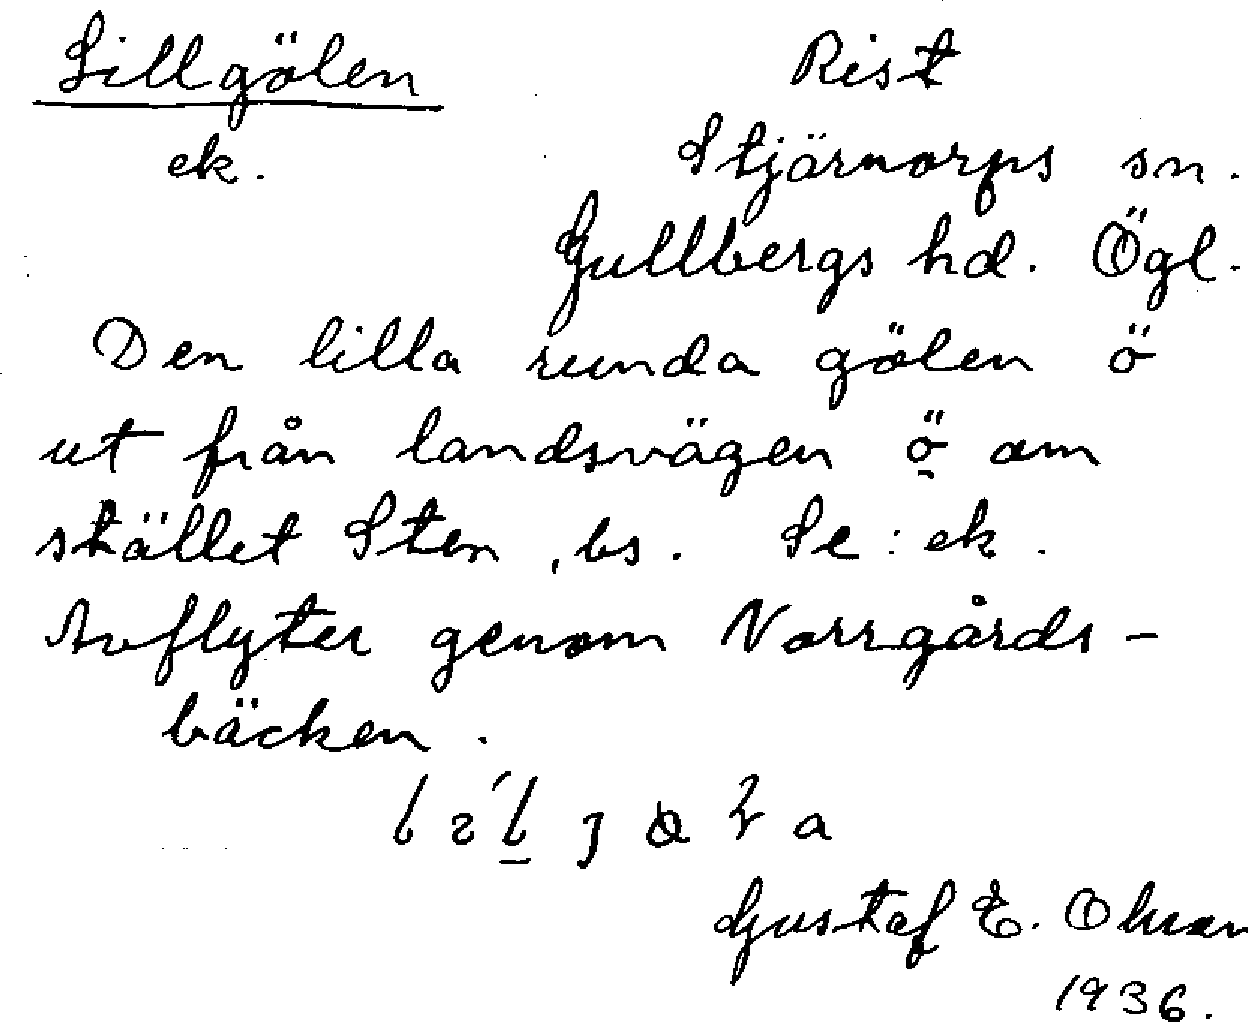 Lillgölen Rist
ek. Stjärnorps sn.
Gullbergs hd. Ögl.
Den lilla runda gölen ö
ut från landsvägen ö om
stället Sten, bs. Se: ek.
Avflyter genom Norrgårds-
bäcken.
Gustaf E. Ohlson
1936.